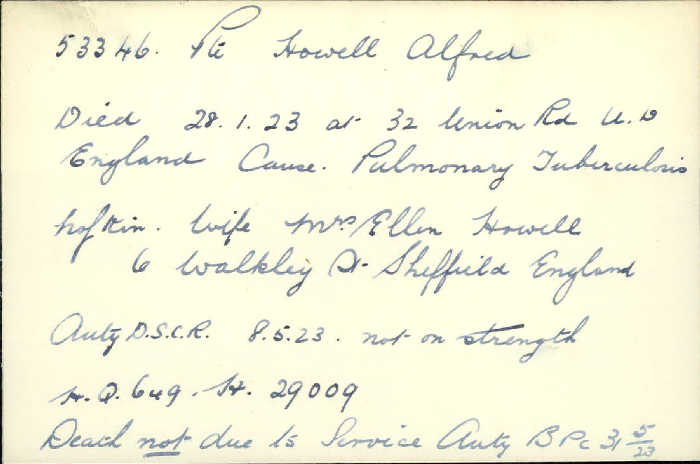 53346. Pte Howell Alfred
Died 28.1.23 at 32 Union Rd
England Cause. Pulmonary Tuberculosis
N of Kin. Wife Mrs Ellen Howell
6 Walkley St Sheffield England
Auty D.S.C.R. 8.5.23. not on strength
H.Q. 649. H. 29009
Death not due to Service Auty B P C 31/5/23